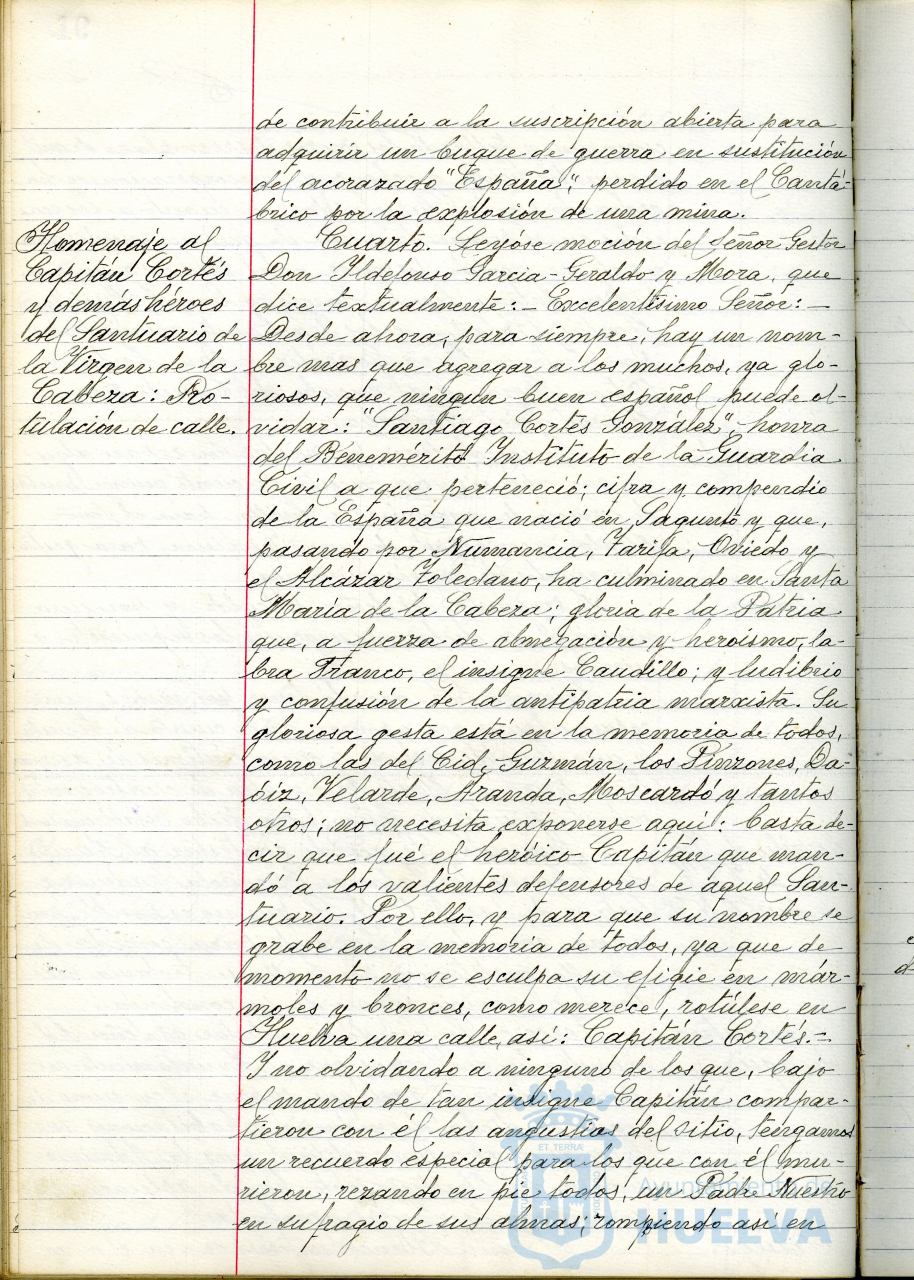 de contribuir a la suscripción abierta para
adquirir un buque de guerra en sustitución
del acorazado "España", perdido en el Cantá-
brico por la explosión de una mina.
Homenaje al
Capitán Cortés
y demás héroes
del Santuario de
la Virgen de la
Cabeza: Ro-
tulación de calle.
Cuarto. Leyóse moción del Señor Gestor
Don Ildefonso Garcia-Geraldo y Mora, que
dice textualmente:- Excelentísimo Señor:-
Desde ahora, para siempre, hay un nom-
bre mas que agregar a los muchos, ya glo-
riosos, que ningun buen español puede ol-
vidar: "Santiago Cortés González", honra
del Benemérito Instituto de la Guardia
Civil a que perteneció; cifra y compendio
de la España que nació en Sagunto y que,
pasando por Numancia, Tarifa, Oviedo y
el Alcázar Toledano, ha culminado en Santa
María de la Cabeza; gloria de la Patria
que, a fuerza de abnegación y heroismo, la-
bra Franco, el insigne Caudillo; y ludibrio
y confusión de la antipatria marxista. Su
gloriosa gesta está en la memoria de todos,
como las del Cid, Guzmán, los Pinzones, Da-
oiz, Velarde, Aranda, Moscardó y tantos
otros; no necesita exponerse aquí: basta de-
cir que fué el heróico Capitán que man-
dó a los valientes defensores de aquel San-
tuario. Por ello, y para que su nombre se
grabe en la memoria de todos, ya que de
momento no se esculpa su efigie en már-
moles y bronces, como merece, rotúlese en
Huelva una calle, así: Capitán Cortés.-
Y no olvidando a ninguno de los que, bajo
el mando de tan insigne Capitán compar-
tieron con él las angustias del sitio, tengamos
un recuerdo especial para los que con él mu-
rieron, rezando en pie todos, un Padre Nuestro
en sufragio de sus almas; rompiendo así en
ET TERRÆ
Ayuntamiento de
HUELVA